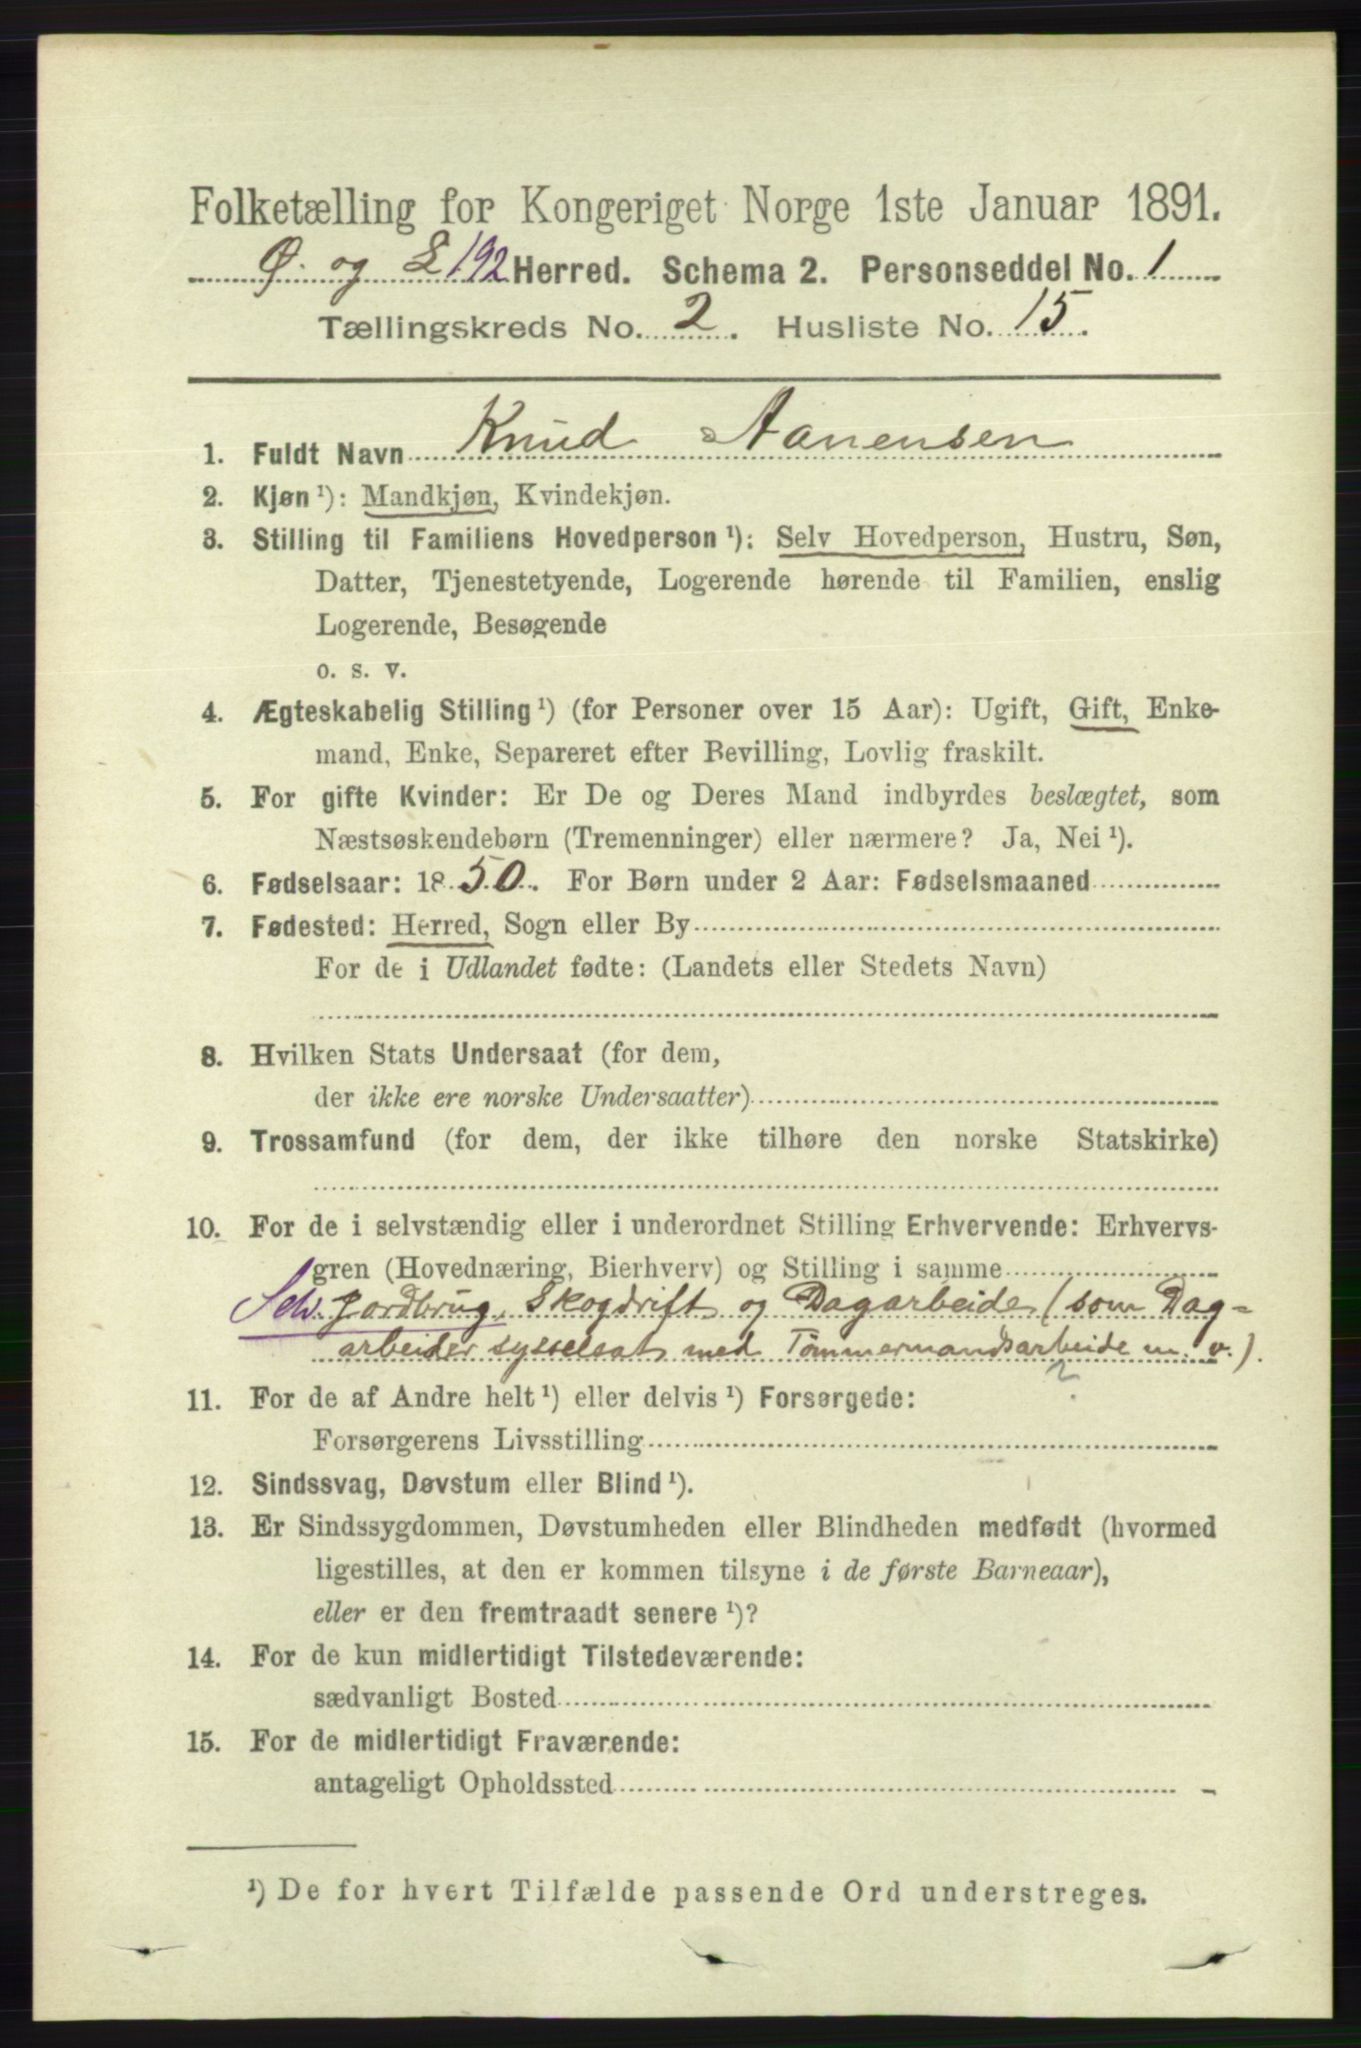 Folketælling for Kongeriget Norge 1ste Januar 1891.
Ø. og L 192 Herred. Schema 2. Personseddel No. 1
Tællingskreds No. 2. Husliste No. 15.
1. Fuldt Navn Knud Aanensen
2. Kjøn ¹): Mandkjøn, Kvindekjøn.
3. Stilling til Familiens Hovedperson ¹): Selv Hovedperson, Hustru, Søn,
Datter, Tjenestetyende, Logerende hørende til Familien, enslig
Logerende, Besøgende
o. s. v.
4. Ægteskabelig Stilling ¹) (for Personer over 15 Aar): Ugift, Gift, Enke-
mand, Enke, Separeret efter Bevilling, Lovlig fraskilt.
5. For gifte Kvinder: Er De og Deres Mand indbyrdes beslægtet, som
Næstsøskendebørn (Tremenninger) eller nærmere? Ja, Nei ¹).
6. Fødselsaar: 1850. For Børn under 2 Aar: Fødselsmaaned
7. Fødested: Herred, Sogn eller By
For de i Udlandet fødte: (Landets eller Stedets Navn)
8. Hvilken Stats Undersaat (for dem,
der ikke ere norske Undersaatter)
9. Trossamfund (for dem, der ikke tilhøre den norske Statskirke)
10. For de i selvstændig eller i underordnet Stilling Erhvervende: Erhvervs-
gren (Hovednæring, Bierhverv) og Stilling i samme
Selv. Jordbrug, Skogdrift og Dagarbeide (som Dag-
arbeider sysselsat med Tømmermandsarbeide m. v.).
?
11. For de af Andre helt ¹) eller delvis ¹) Forsørgede:
Forsørgerens Livsstilling
12. Sindssvag, Døvstum eller Blind ¹).
13. Er Sindssygdommen, Døvstumheden eller Blindheden medfødt (hvormed
ligestilles, at den er kommen tilsyne i de første Barneaar),
eller er den fremtraadt senere ¹)?
14. For de kun midlertidigt Tilstedeværende:
sædvanligt Bosted
15. For de midlertidigt Fraværende:
antageligt Opholdssted
¹) De for hvert Tilfælde passende Ord understreges.